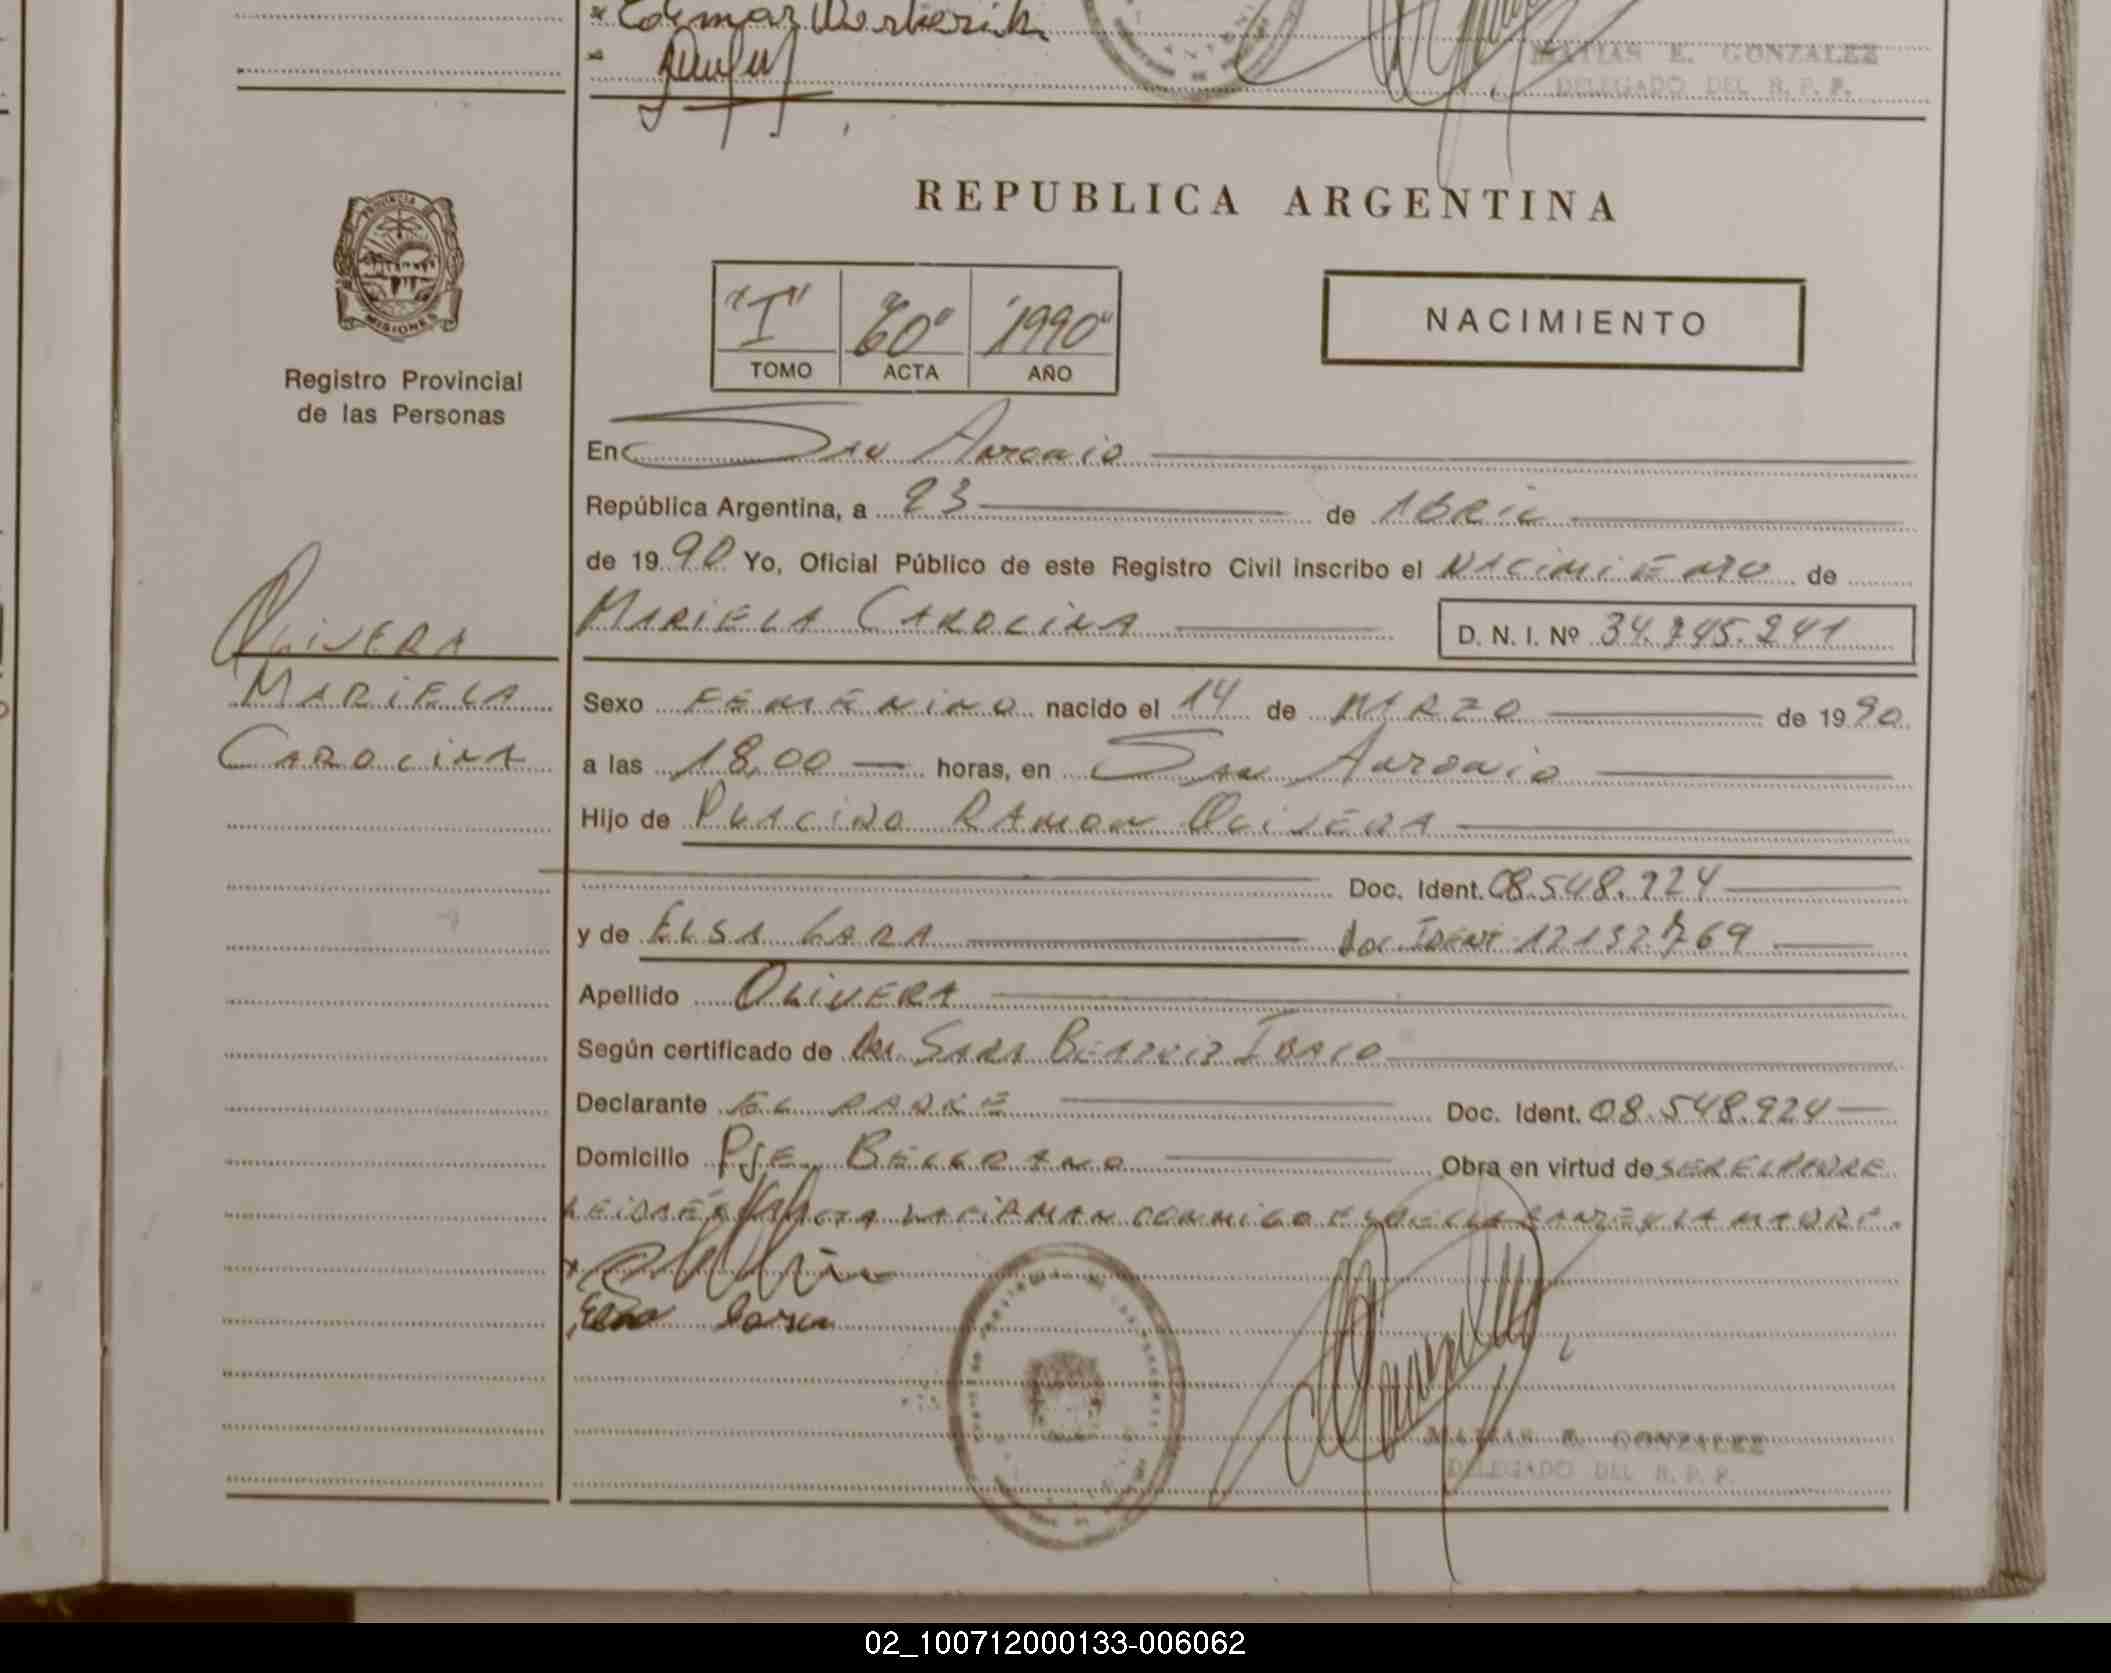 Edemar
MATIAS E. GONZALEZ
DELEGADO DEL R. P. P.
PROVINCIA DE
MISIONES
Registro Provincial
de las Personas
REPUBLICA ARGENTINA
"I" 60" "1990"
TOMO ACTA AÑO
NACIMIENTO
En San Antonio
República Argentina, a 23 de Abril
de 1990 Yo, Oficial Público de este Registro Civil inscribo el NACIMIENTO de
MARIELA CAROLINA D. N. I. Nº
OLIVERA
MARIELA
CAROLINA
Sexo FEMENINO nacido el 14 de MARZO de 1990
a las 18,00 horas, en San Antonio
Hijo de PLACIDO RAMON OLIVERA
Doc. Ident. 08.548.924
y de ELSA LARA Doc IDENT 12132769
Apellido OLIVERA
Según certificado de SARA BEATRIZ
Declarante EL PADRE Doc. Ident. 08.548.924
Domicilio PJE. BELGRANO Obra en virtud de SER EL PADRE
LEIDA EL ACTA LA FIRMAN CONMIGO EL DECLARANTE Y LA MADRE.
Elsa Lara
MATIAS E. GONZALEZ
DELEGADO DEL R. P. P.
02_100712000133-006062